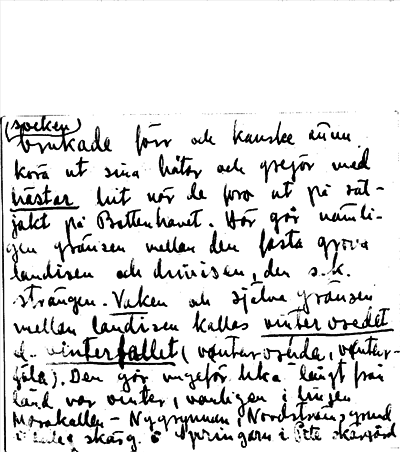 (socken)
brukade förr och kanske ännu
köra ut sina båtar och grejor med
hästar hit när de foro ut på säl-
jakt på Bottenhavet. Här går nämli-
gen gränsen mellan den fasta grova
landisen och drivisen, den s.k.
strängen. Vaken och själva gränsen
mellan landisen kallas vinterovedet
el. vinterfallet (vønterovéda, vønter-
fála). Den går ungefär lika långt från
land var vinter, vanligen i linjen
Morakallen - Nygrynnan, Nordströmsgrund
skärg. ö Springarn i Pite skärgård